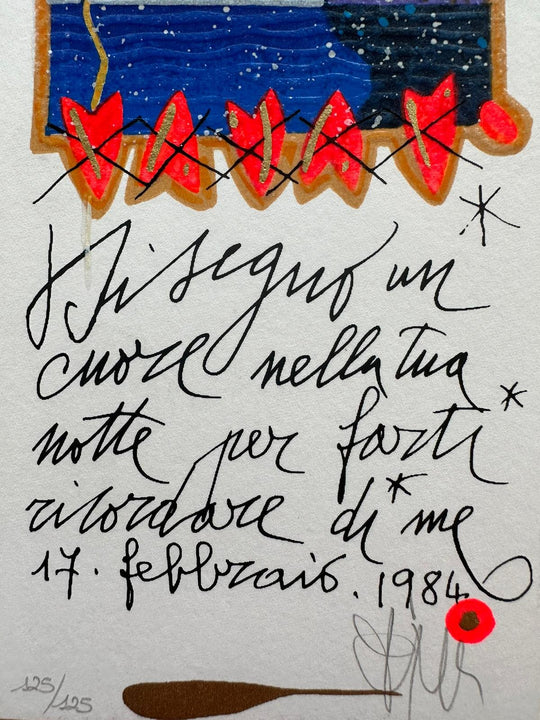 Disegno un
cuore nella tua
notte per farti
ricordare di me
17. febbraio. 1984
125/125